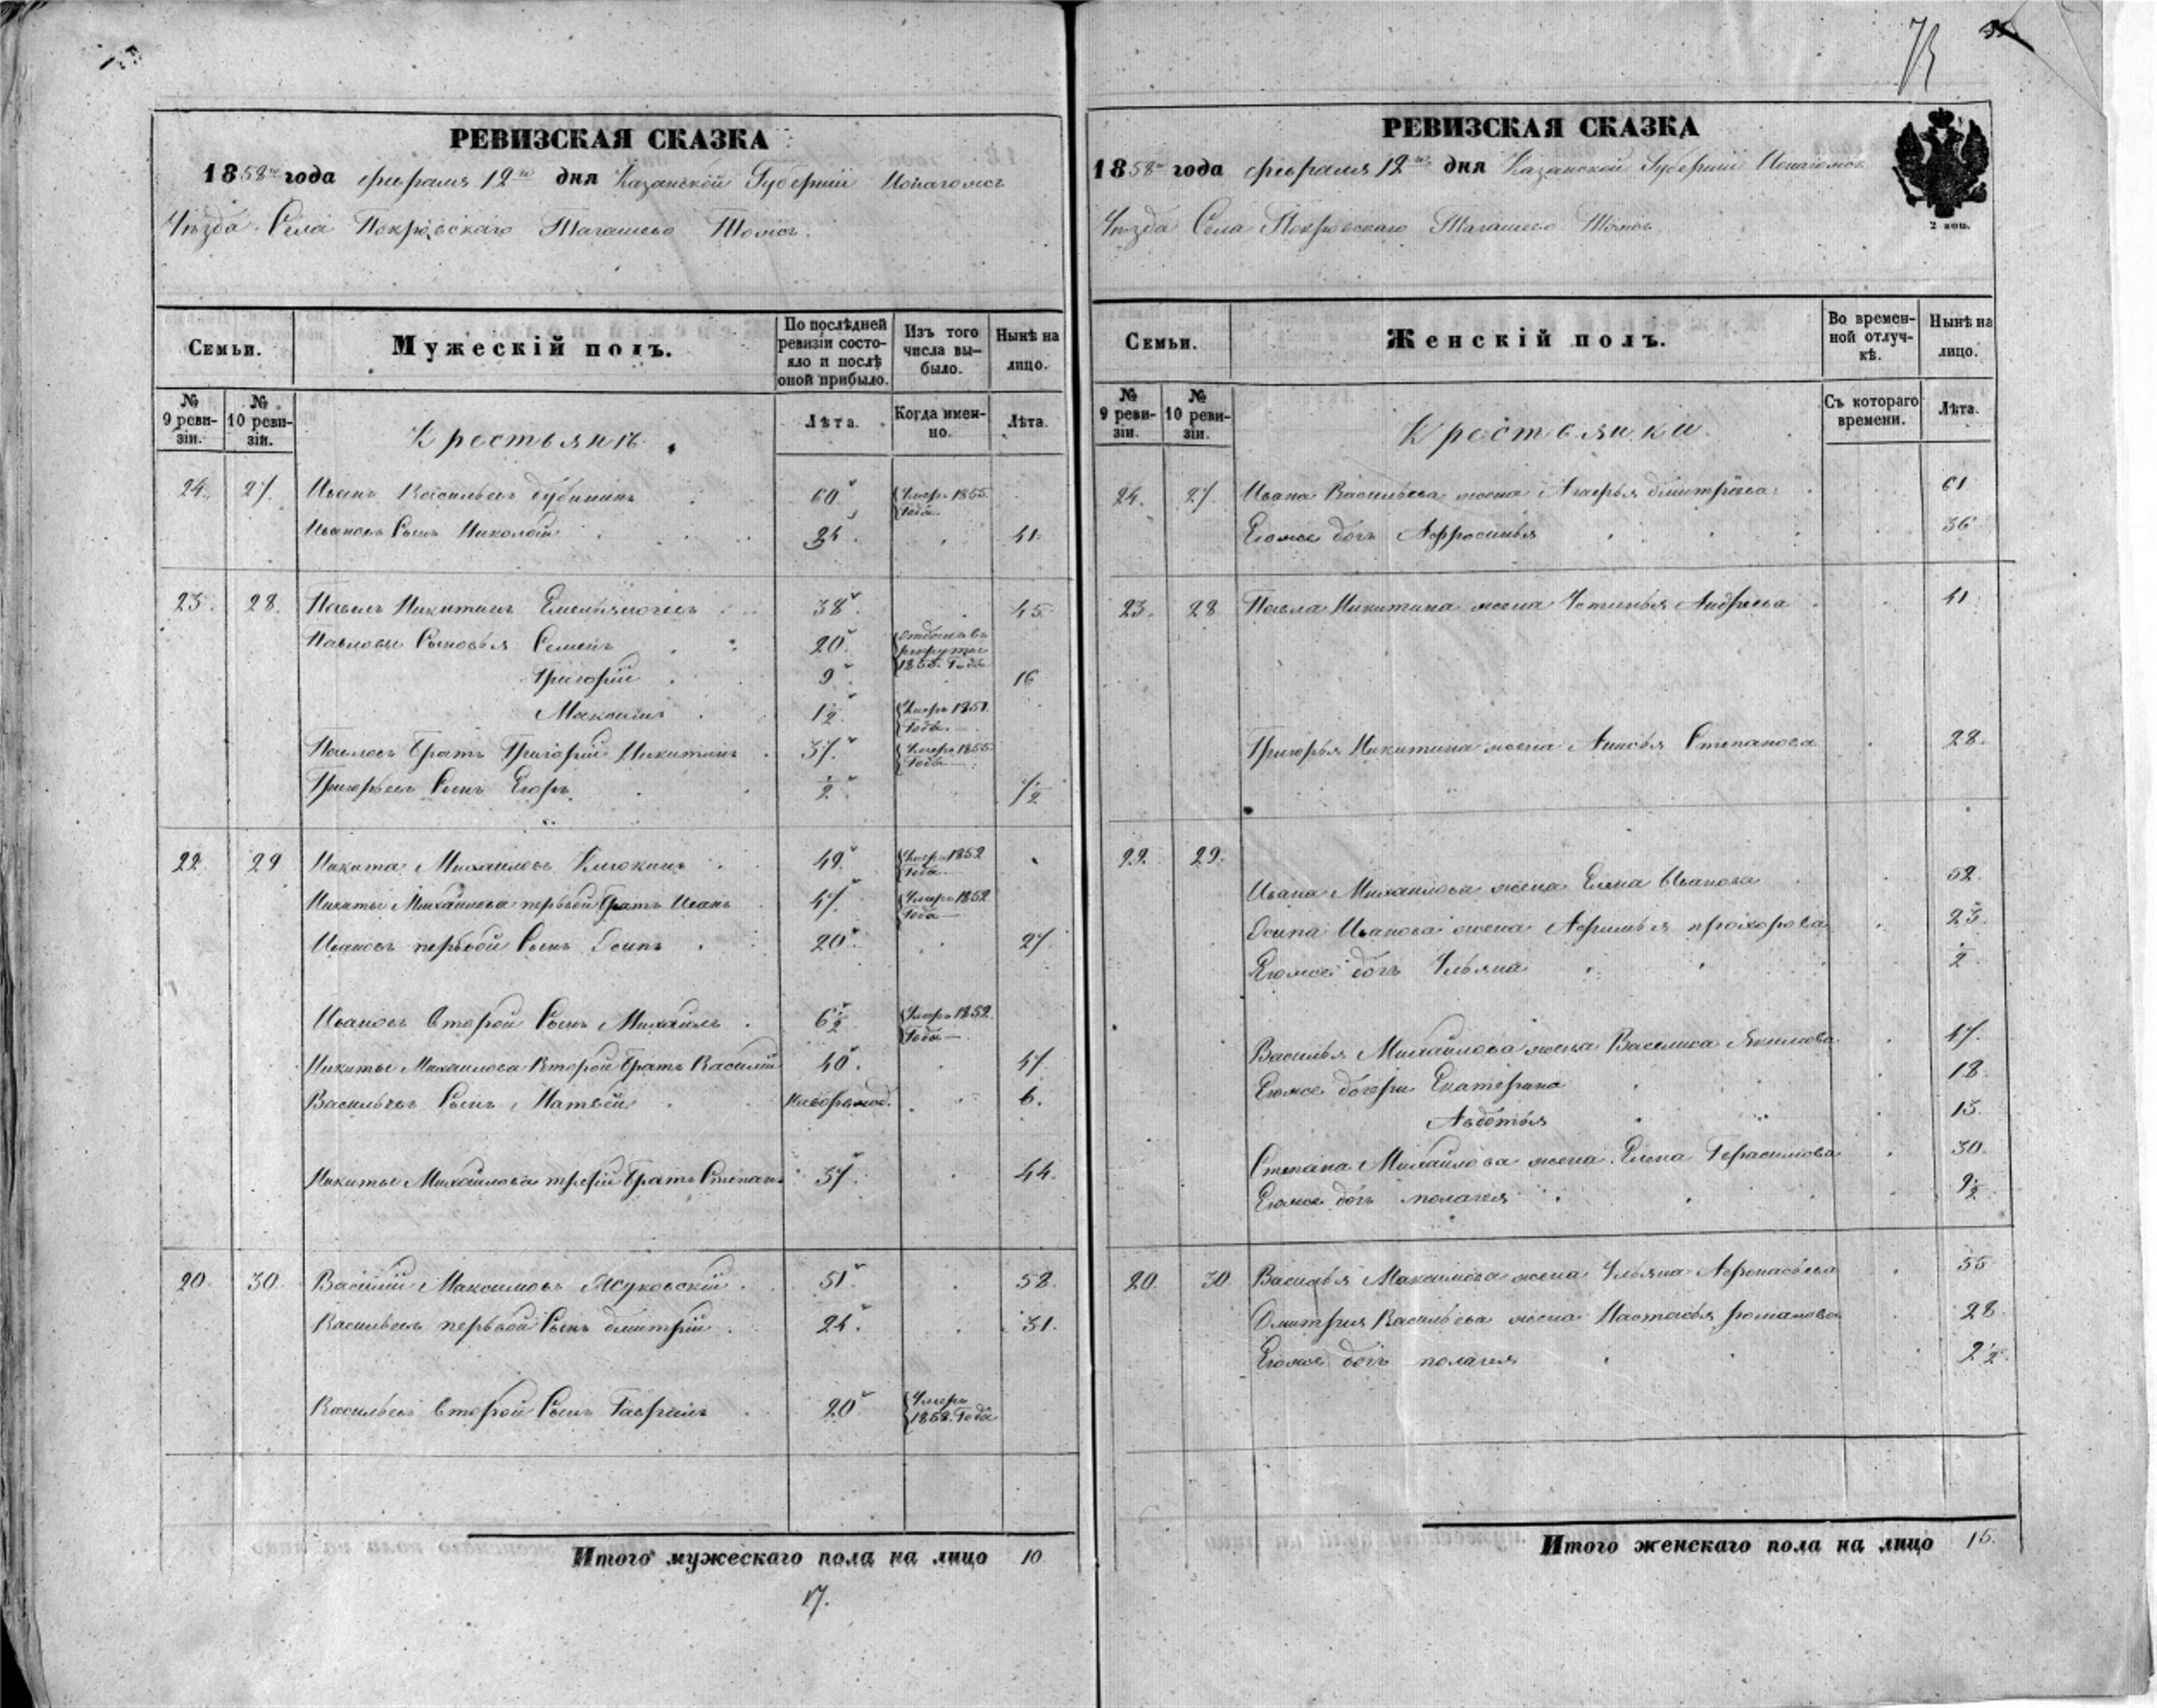 75
РЕВИЗСКАЯ СКАЗКА
1858го года февраля 12го дня Казанской Губернии
Уѣзда Села Покровскаго Тагашево Томъ.
Семьи.
Мужескій полъ.
По послѣдней ревизіи состояло и послѣ оной прибыло.
Изъ того числа выбыло.
Нынѣ на лицо.
№ 9 ревизіи.
№ 10 ревизіи.
Крестьянъ
Лѣта.
Когда именно.
Лѣта.
24. 27. Иванъ Васильевъ Дубининъ 60 Умеръ 1855 Года
Ивановъ Сынъ Николай 34. 41.
23. 28. Павелъ Никитинъ 38. 45.
Павловы Сыновья Семенъ 20. отданъ въ рекруты Года
Григорій 9. 16
Максимъ 1½. Умеръ 1851 Года
Павловъ Братъ Григорій Никитинъ 37. Умеръ 1855 Года
Григорьевъ Сынъ Егоръ ½. 7½
22. 29 Никита Михаиловъ Клюкинъ 49. Умеръ 1852 Года
Никиты Михаилова первый Братъ Иванъ 47. Умеръ 1852 Года
Ивановъ первый Сынъ Осипъ 20 27.
Ивановъ Второй Сынъ Михайлъ 6½ Умеръ 1852 Года
Никиты Михаилова Второй Братъ Василій 40. 47.
Васильевъ Сынъ Матвей Новорожд. 6.
Никиты Михайлова третій Братъ Степанъ 37. 44.
20. 30. Василій Максимовъ Жуковскій 51. 58.
Васильевъ первый Сынъ Дмитрій 24. 31.
Васильевъ Второй Сынъ Гаврилъ 20 Умеръ 1858. Года
Итого мужескаго пола на лицо 10.
17.
РЕВИЗСКАЯ СКАЗКА
1858го года февраля 12го дня Казанской Губернии
Уѣзда Села Покровскаго Тагашево Томъ.
2 коп.
Семьи.
Женскій полъ.
Во временной отлучкѣ.
Нынѣ на лицо.
№ 9 ревизіи.
№ 10 ревизіи.
Крестьянки
Съ котораго времени.
Лѣта.
24. 27. Ивана Васильева жена Агафья Дмитріева 61
Егоже дочь Афросинья 36
23. 28 Павла Никитина жена Устинья Андреева 41
Григорья Никитина жена Анисья Степанова 28.
22. 29.
Ивана Михаилова жена Елена Иванова 52.
Осипа Иванова жена Афимья прохорова 25.
Егоже дочь Ульяна ½.
Василья Михайлова жена Василиса Якимова 47.
Егоже дочери Екатерина 18.
Авдотья 13.
Степана Михайлова жена Елена Герасимова 30.
Егоже дочь полагея 9½
20. 30. Василья Максимова жена Ульяна Афонасьева 55
Дмитрия Васильева жена Настасья романова 28.
Егоже дочь полагея 2½.
Итого женскаго пола на лицо 15.